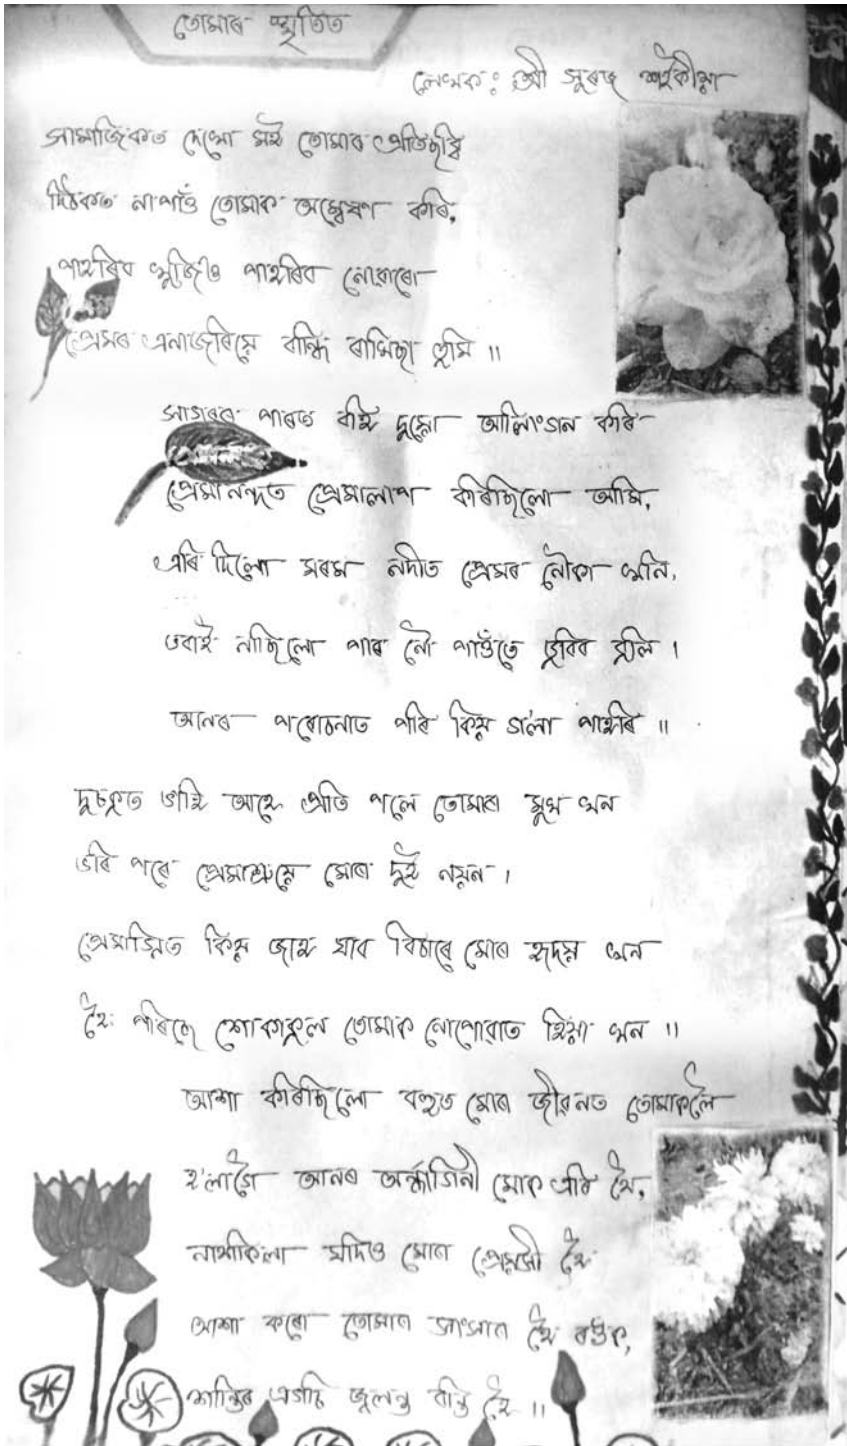 তোমাৰ স্মৃতিত
লেখক: শ্ৰী সুৰজ শইকীয়া
সামাজিকত দেখো মই তোমাৰ প্ৰতিচ্ছবি
দিঠকত নাপাওঁ তোমাক অন্বেষণ কৰি,
পাহৰিব খুজিও পাহৰিব নোৱাৰো
প্ৰেমৰ এনাজৰিয়ে বান্ধি ৰাখিছা তুমি ॥
সাগৰৰ পাৰত বহি দুয়ো আলিংগন কৰি
প্ৰেমানন্দত প্ৰেমালাপ কৰিছিলো আমি,
এৰি দিলো মৰম নদীত প্ৰেমৰ নৌকা খনি,
ভবাই নাছিলো পাৰ নৌ পাওঁতে ডুবিব বুলি ।
আনৰ প্ৰৰোচনাত পৰি কিয় গ'লা পাহৰি ॥
দুচকুত ভাহি আহে প্ৰতি পলে তোমাৰ মুখ খন
ভৰি পৰে প্ৰেমাশ্ৰুয়ে মোৰ দুই নয়ন ।
প্ৰেমাগ্নিত কিয় জাহ যাব বিচাৰে মোৰ হৃদয় খন
হৈ পৰিছে শোকাকুল তোমাক নোপোৱাত হিয়া খন ॥
আশা কৰিছিলো বহুত মোৰ জীৱনত তোমাকলৈ
হ'লাগৈ আনৰ অৰ্দ্ধাগিনী মোক এৰি থৈ,
নাথাকিলা যদিও মোৰ প্ৰেয়সী হৈ
আশা কৰো তোমাৰ সাংসাৰ হৈ ৰওক,
শান্তিৰ এগছি জ্বলন্ত বন্তি হৈ ॥